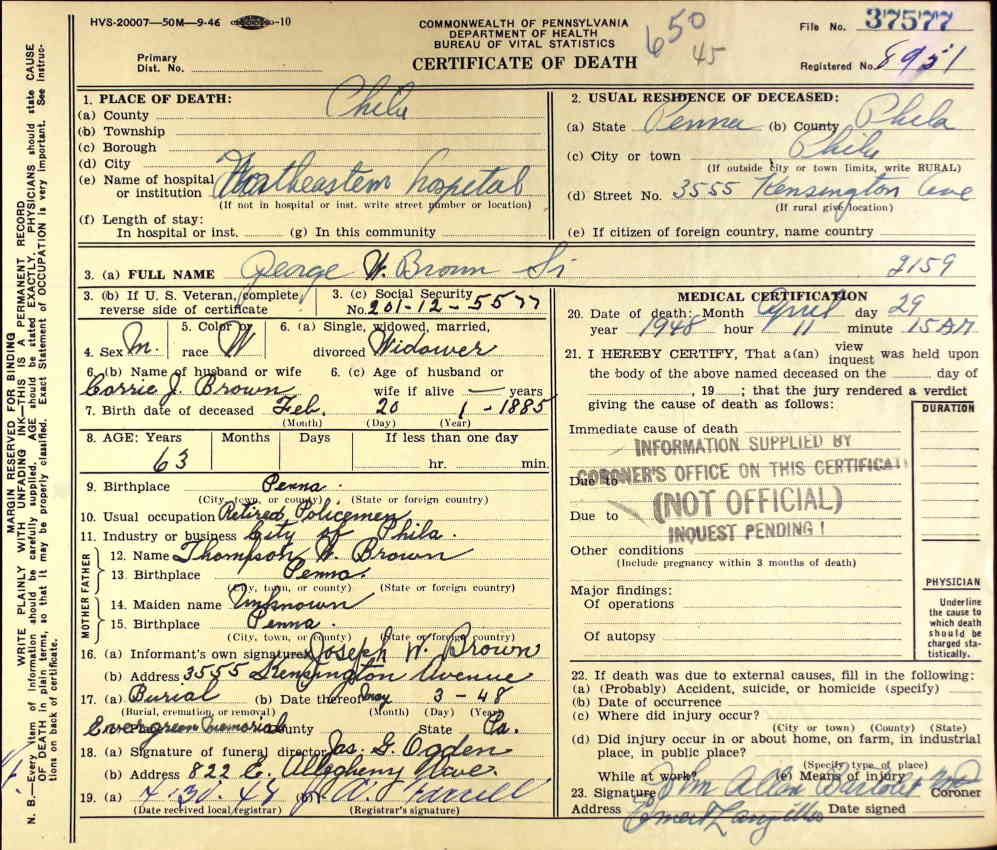 HVS-20007—50M—9-46 -10
COMMONWEALTH OF PENNSYLVANIA
DEPARTMENT OF HEALTH
BUREAU OF VITAL STATISTICS
CERTIFICATE OF DEATH
650
45
File No. 37577
Registered No. 8951
Primary
Dist. No.
MARGIN RESERVED FOR BINDING
WRITE PLAINLY WITH UNFADING INK—THIS IS A PERMANENT RECORD
N. B.—Every item of information should be carefully supplied. AGE should be stated EXACTLY. PHYSICIANS should state CAUSE
OF DEATH in plain terms, so that it may be properly classified. Exact Statement of OCCUPATION is very important. See instruc-
tions on back of certificate.
1. PLACE OF DEATH:
(a) County Phila
(b) Township
(c) Borough
(d) City
(e) Name of hospital
or institution Northeastern hospital
(If not in hospital or inst. write street number or location)
(f) Length of stay:
In hospital or inst. (g) In this community
2. USUAL RESIDENCE OF DECEASED:
(a) State Penna (b) County Phila
(c) City or town Phila
(If outside city or town limits, write RURAL)
(d) Street No. 3555 Kensington Ave
(If rural give location)
(e) If citizen of foreign country, name country
3. (a) FULL NAME George W. Brown Sr 2159
3. (b) If U. S. Veteran, complete
reverse side of certificate
3. (c) Social Security
No. 201-12-5577
4. Sex M.
5. Color or
race W
6. (a) Single, widowed, married,
divorced Widower
6. (b) Name of husband or wife
Carrie J. Brown
6. (c) Age of husband or
wife if alive — years
7. Birth date of deceased Feb. 20 1-1885
(Month) (Day) (Year)
8. AGE: Years Months Days If less than one day
63 hr. min.
9. Birthplace Penna.
(City, town, or county) (State or foreign country)
10. Usual occupation Retired Policemen
11. Industry or business City of Phila.
FATHER
12. Name Thompson W. Brown
13. Birthplace Penna.
(City, town, or county) (State or foreign country)
MOTHER
14. Maiden name Unknown
15. Birthplace Penna
(City, town, or county) (State or foreign country)
16. (a) Informant's own signature Joseph W. Brown
(b) Address 3555 Kensington Avenue
17. (a) Burial (b) Date thereof May 3-48
(Burial, cremation, or removal) (Month) (Day) (Year)
Evergreen Memorial County State Pa.
18. (a) Signature of funeral director Jas. G. Ogden
(b) Address 822 E. Allegheny Ave.
19. (a) 4.30.48 (b) Farrell
(Date received local registrar) (Registrar's signature)
MEDICAL CERTIFICATION
20. Date of death: Month April day 29
year 1948 hour 11 minute 15 AM
21. I HEREBY CERTIFY, That a(an) view inquest was held upon
the body of the above named deceased on the day of
, 19 ; that the jury rendered a verdict
giving the cause of death as follows:
DURATION
Immediate cause of death
Due to
Due to
INFORMATION SUPPLIED BY
CORONER'S OFFICE ON THIS CERTIFICAT
(NOT OFFICIAL)
INQUEST PENDING !
Other conditions
(Include pregnancy within 3 months of death)
Major findings:
Of operations
Of autopsy
PHYSICIAN
Underline
the cause to
which death
should be
charged sta-
tistically.
22. If death was due to external causes, fill in the following:
(a) (Probably) Accident, suicide, or homicide (specify)
(b) Date of occurrence
(c) Where did injury occur?
(City or town) (County) (State)
(d) Did injury occur in or about home, on farm, in industrial
place, in public place?
(Specify type of place)
While at work? (e) Means of injury
23. Signature John Allen Coroner
Address Date signed